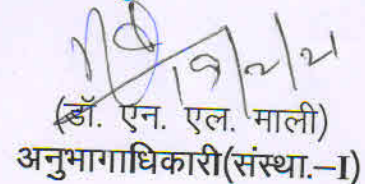 19/2/21
(डॉ. एन. एल. माली)
अनुभागाधिकारी(संस्था.–I)